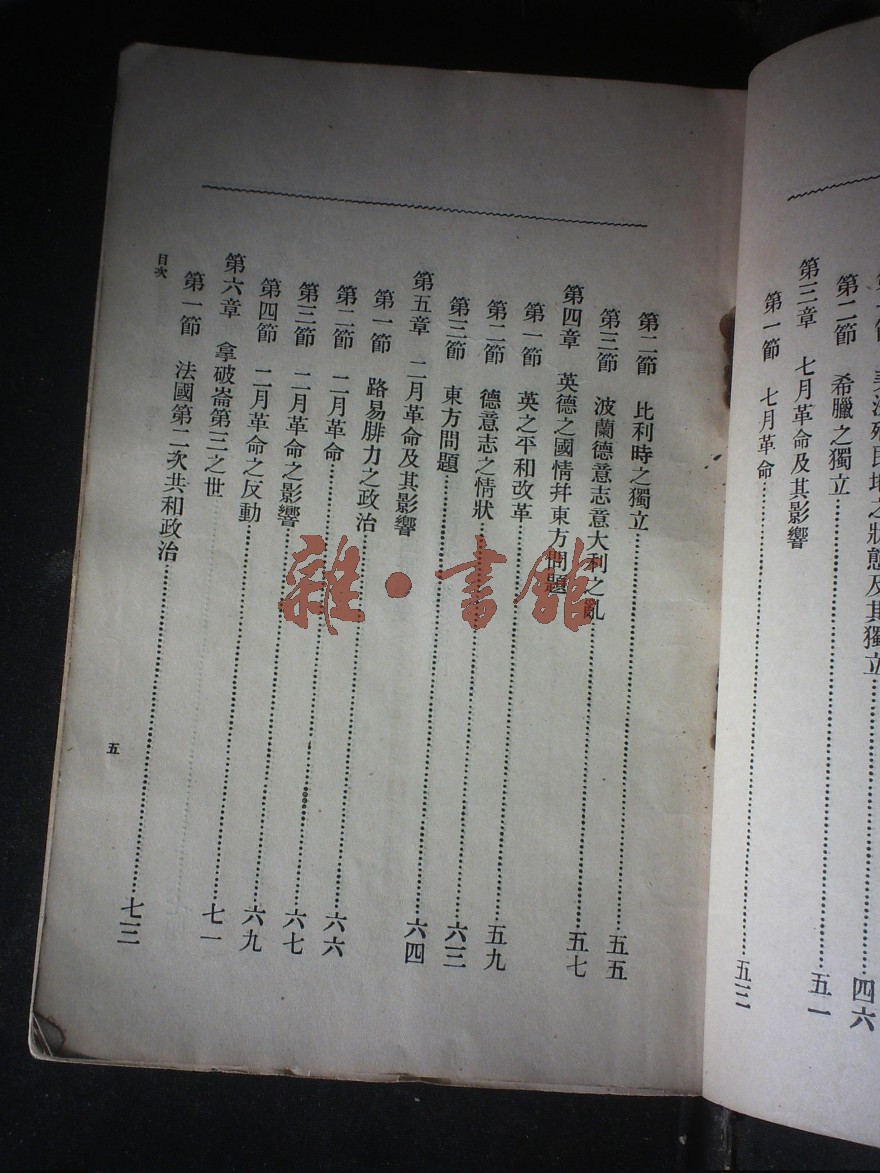 美洲殖民地之狀態及其獨立……四六
第二節 希臘之獨立……五一
第三章 七月革命及其影響
第一節 七月革命……五三
第二節 比利時之獨立……五五
第三節 波蘭德意志意大利之亂……五七
第四章 英德之國情幷東方問題
第一節 英之平和改革……五九
第二節 德意志之情狀……六三
第三節 東方問題……六四
第五章 二月革命及其影響
第一節 路易腓力之政治……六六
第二節 二月革命……六七
第三節 二月革命之影響……六九
第四節 二月革命之反動……七一
第六章 拿破崙第三之世
第一節 法國第二次共和政治……七三
目次
五
雜·書館